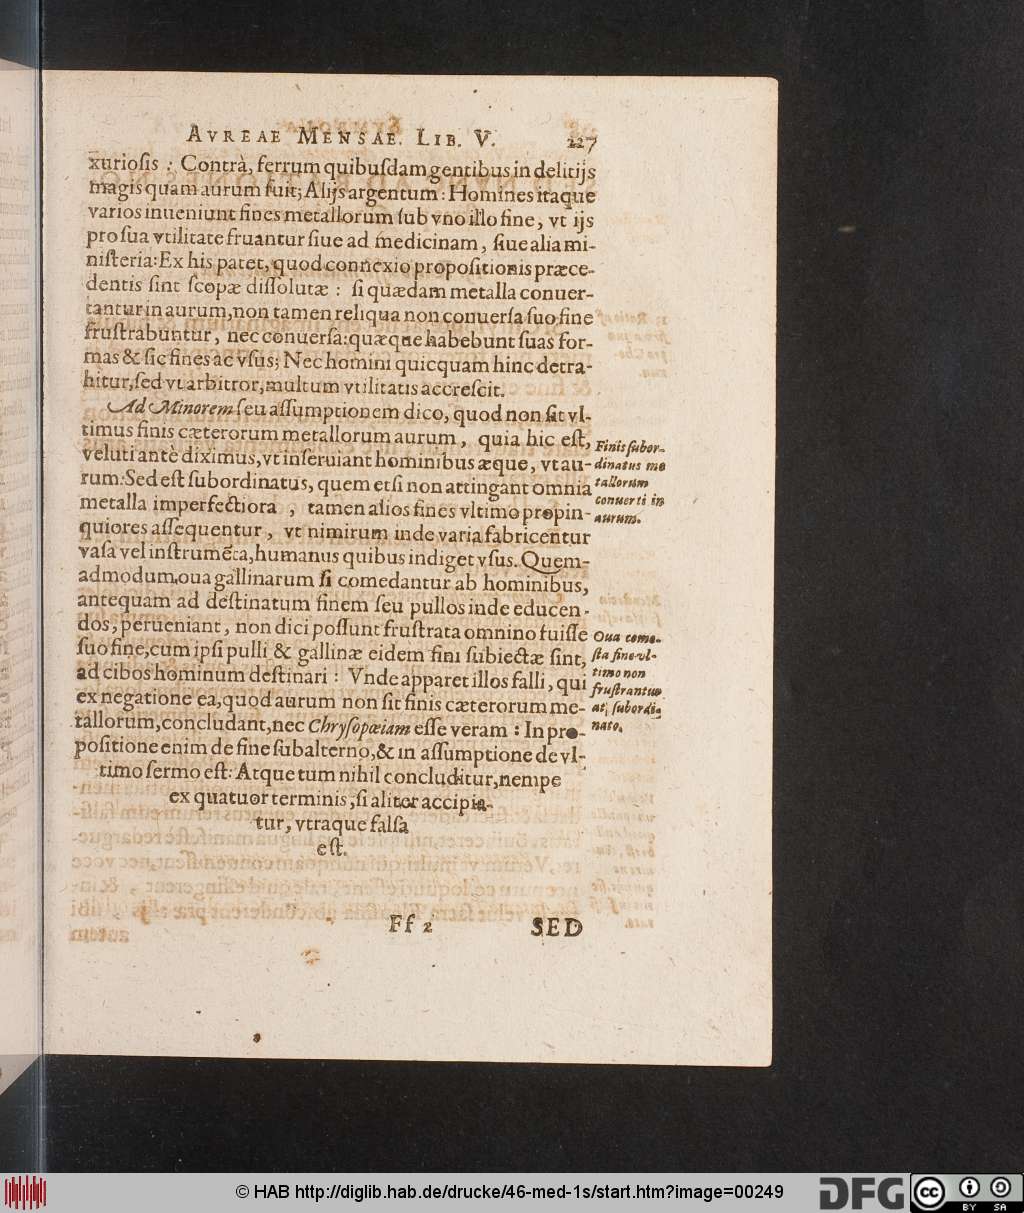 AVREAE MENSAE. LIB. V. 227
xuriosis : Contrà, ferrum quibuſdam gentibus in delitijs
magis quam aurum fuit; Alijs argentum : Homines itaque
varios inueniunt fines metallorum ſub vno illo fine, vt ijs
pro ſua vtilitate fruantur ſiue ad medicinam, ſiue alia mi-
niſteria: Ex his patet, quod connexio propoſitionis præce-
dentis ſint ſcopæ diſſolutæ : ſi quædam metalla conuer-
tantur in aurum, non tamen reliqua non conuerſa ſuo fine
fruſtrabuntur, nec conuerſa: quæque habebunt ſuas for-
mas & ſic fines ac vſus; Nec homini quicquam hinc detra-
hitur, ſed vt arbitror, multum vtilitatis accreſcit.
Ad Minorem ſeu aſſumptionem dico, quod non ſit vl-
timus finis cæterorum metallorum aurum, quia hic eſt,
veluti antè diximus, vt inſeruiant hominibus æque, vt au-
rum: Sed eſt ſubordinatus, quem etſi non attingant omnia
metalla imperfectiora, tamen alios fines vltimo propin-
quiores aſſequentur, vt nimirum inde varia fabricentur
vaſa vel inſtrumēta, humanus quibus indiget vſus. Quem-
admodum oua gallinarum ſi comedantur ab hominibus,
antequam ad deſtinatum finem ſeu pullos inde educen-
dos, perueniant, non dici poſſunt fruſtrata omnino fuiſſe
ſuo fine, cum ipſi pulli & gallinæ eidem fini ſubiectæ ſint,
ad cibos hominum deſtinari : Vnde apparet illos falli, qui
ex negatione ea, quod aurum non ſit finis cæterorum me-
tallorum, concludant, nec Chryſopœiam eſſe veram : In pro-
poſitione enim de fine ſubalterno, & in aſſumptione de vl-
timo ſermo eſt: Atque tum nihil concluditur, nempe
ex quatuor terminis, ſi aliter accipia-
tur, vtraque falſa
eſt.
Finis ſubor-
dinatus me
tallorum
conuerti in
aurum.
Oua come-
ſta fine vl-
timo non
fruſtrantur
at, ſubordi-
nato.
Ff 2 SED
© HAB http://diglib.hab.de/drucke/46-med-1s/start.htm?image=00249
DFG
cc BY SA